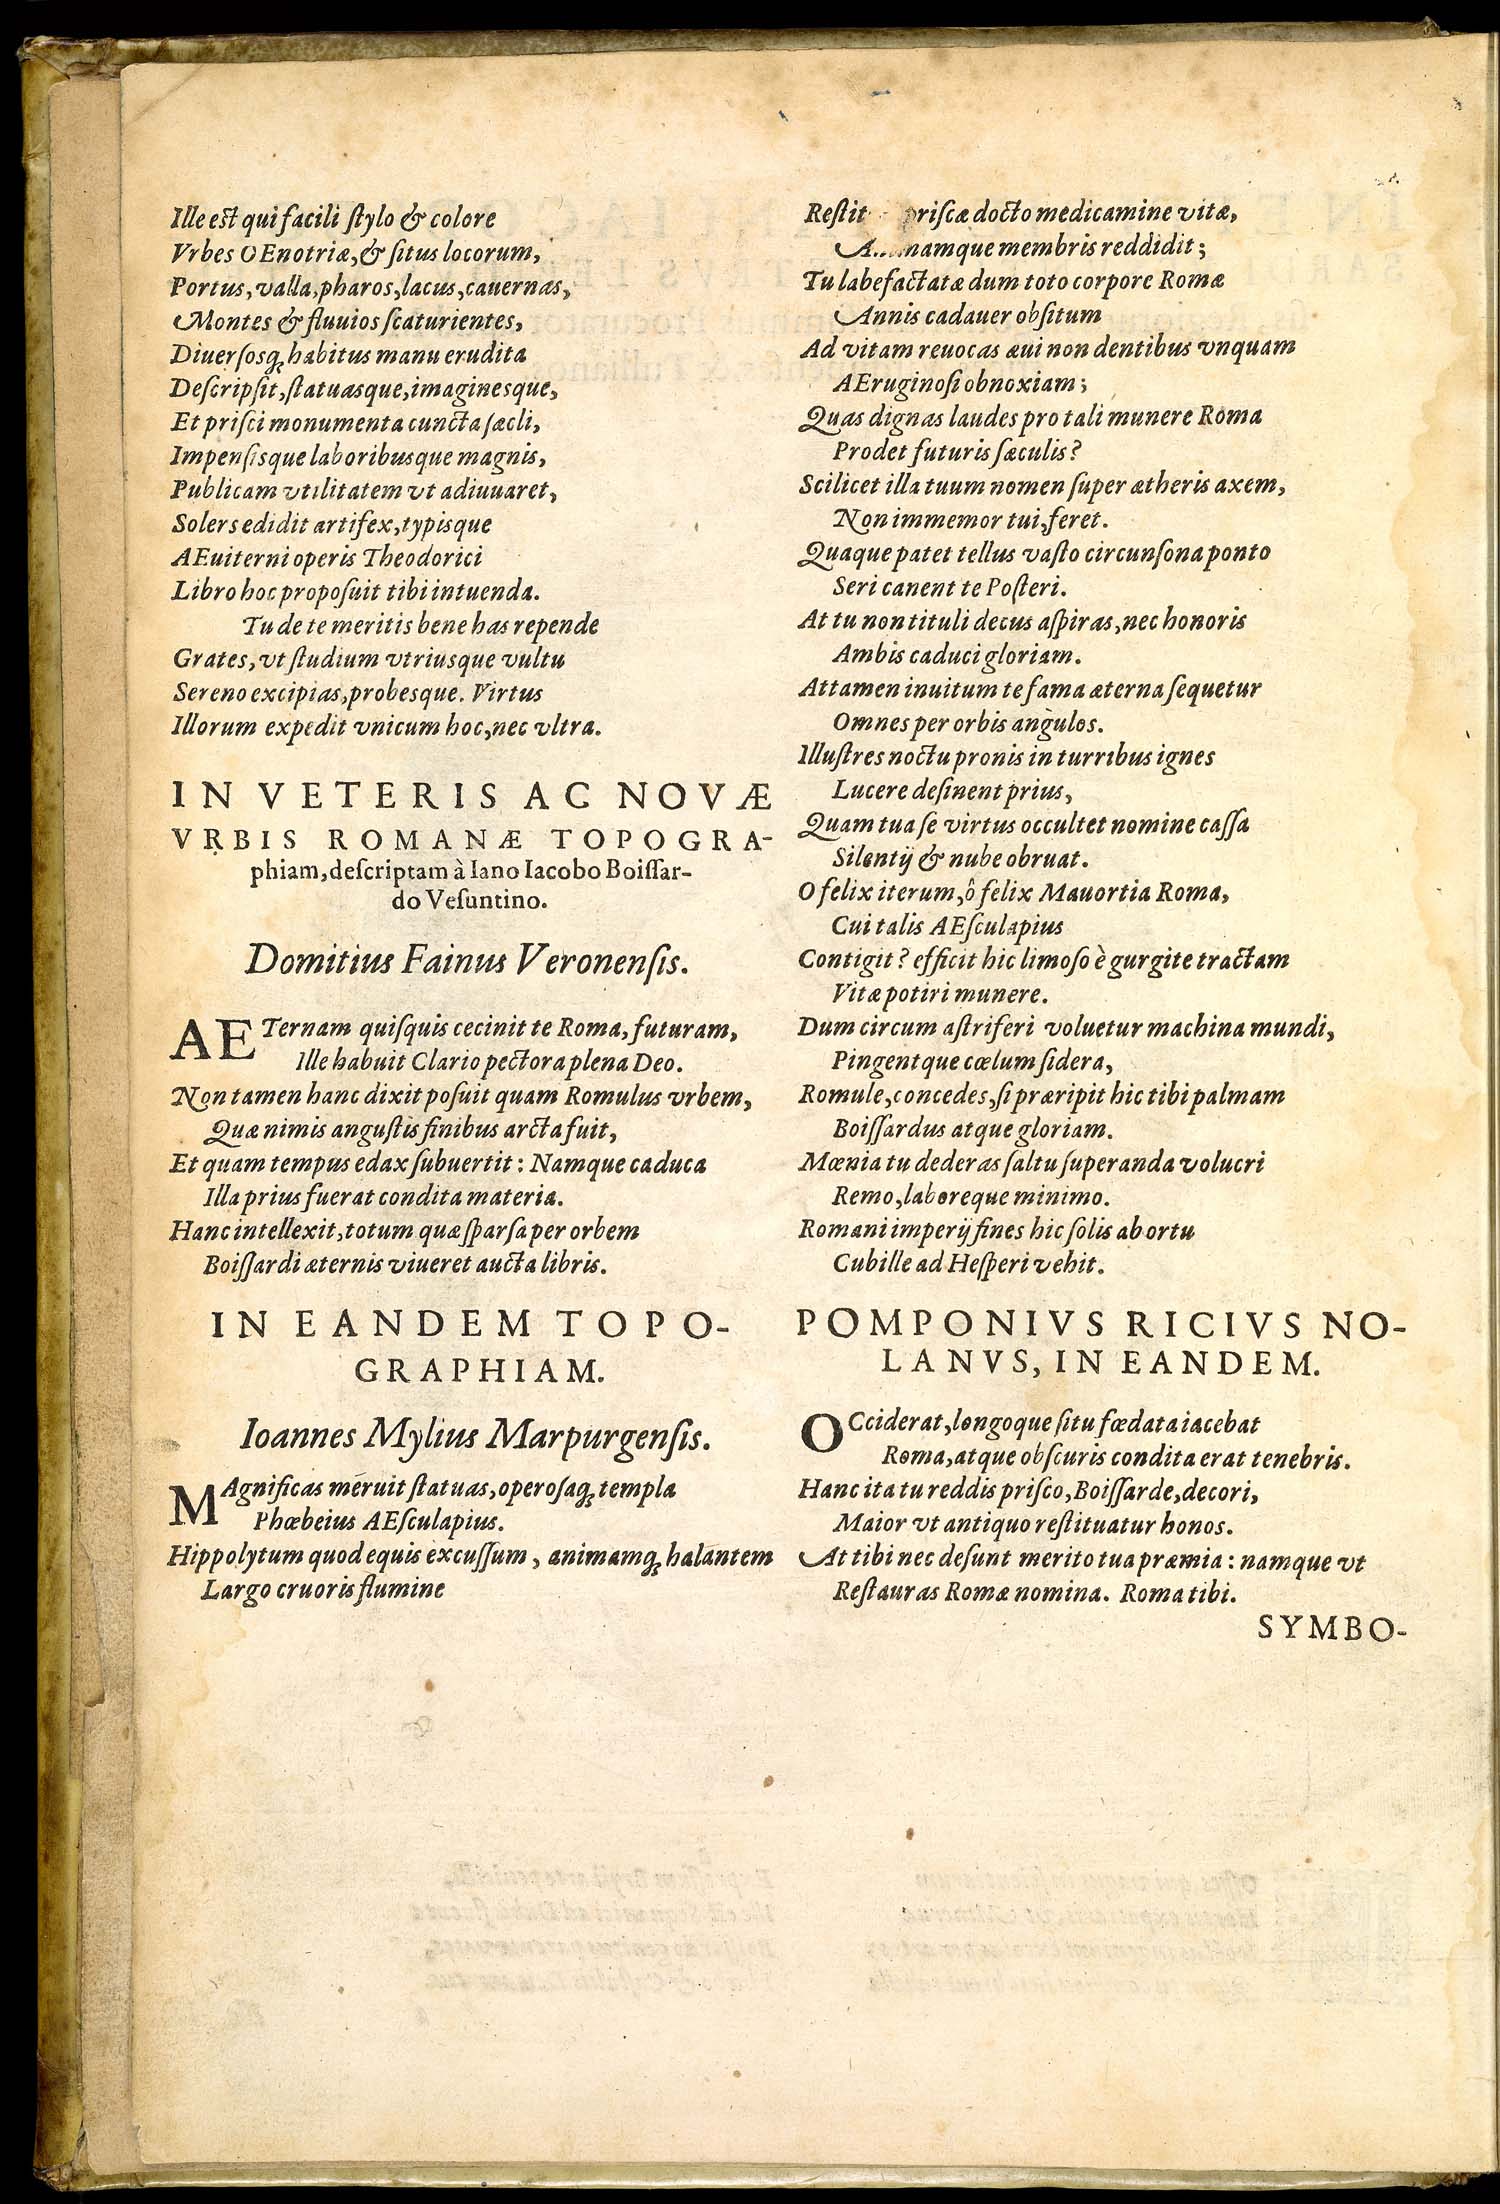 Ille est qui facili ſtylo & colore
Vrbes OEnotriæ, & ſitus locorum,
Portus, valla, pharos, lacus, cauernas,
Montes & fluuios ſcaturientes,
Diuerſosq; habitus manu erudita
Deſcripſit, ſtatuasque, imaginesque,
Et priſci monumenta cuncta ſæcli,
Impenſisque laboribusque magnis,
Publicam vtilitatem vt adiuuaret,
Solers edidit artifex, typisque
AEuiterni operis Theodorici
Libro hoc propoſuit tibi intuenda.
Tu de te meritis bene has repende
Grates, vt ſtudium vtriusque vultu
Sereno excipias, probesque. Virtus
Illorum expedit vnicum hoc, nec vltra.
IN VETERIS AC NOVÆ
VRBIS ROMANÆ TOPOGRA-
phiam, deſcriptam à Iano Iacobo Boiſſar-
do Veſuntino.
Domitius Fainus Veronenſis.
AETernam quiſquis cecinit te Roma, futuram,
Ille habuit Clario pectora plena Deo.
Non tamen hanc dixit poſuit quam Romulus vrbem,
Quæ nimis anguſtis finibus arcta fuit,
Et quam tempus edax ſubuertit: Namque caduca
Illa prius fuerat condita materia.
Hanc intellexit, totum quæ ſparſa per orbem
Boiſſardi æternis viueret aucta libris.
IN EANDEM TOPO-
GRAPHIAM.
Ioannes Mylius Marpurgenſis.
MAgnificas meruit ſtatuas, operoſaq; templa
Phœbeius AEſculapius.
Hippolytum quod equis excuſſum, animamq; halantem
Largo cruoris flumine
Reſtit priſcæ docto medicamine vitæ,
namque membris reddidit;
Tu labefactatæ dum toto corpore Romæ
Annis cadauer obſitum
Ad vitam reuocas æui non dentibus vnquam
AEruginoſi obnoxiam;
Quas dignas laudes pro tali munere Roma
Prodet futuris ſæculis?
Scilicet illa tuum nomen ſuper ætheris axem,
Non immemor tui, feret.
Quaque patet tellus vaſto circunſona ponto
Seri canent te Poſteri.
At tu non tituli decus aſpiras, nec honoris
Ambis caduci gloriam.
Attamen inuitum te fama æterna ſequetur
Omnes per orbis angulos.
Illuſtres noctu pronis in turribus ignes
Lucere deſinent prius,
Quam tua ſe virtus occultet nomine caſſa
Silentij & nube obruat.
O felix iterum, ô felix Mauortia Roma,
Cui talis AEſculapius
Contigit? efficit hic limoſo è gurgite tractam
Vitæ potiri munere.
Dum circum aſtriferi voluetur machina mundi,
Pingentque cœlum ſidera,
Romule, concedes, ſi præripit hic tibi palmam
Boiſſardus atque gloriam.
Mœnia tu dederas ſaltu ſuperanda volucri
Remo, laboreque minimo.
Romani imperij fines hic ſolis ab ortu
Cubille ad Heſperi vehit.
POMPONIVS RICIVS NO-
LANVS, IN EANDEM.
OCciderat, longoque ſitu fœdata iacebat
Roma, atque obſcuris condita erat tenebris.
Hanc ita tu reddis priſco, Boiſſarde, decori,
Maior vt antiquo reſtituatur honos.
At tibi nec deſunt merito tua præmia: namque vt
Reſtauras Romæ nomina. Roma tibi.
SYMBO-